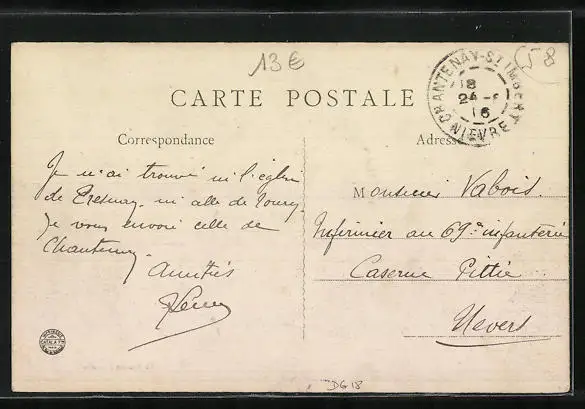 13€
58
CARTE POSTALE
CHANTENAY-ST IMBERT
18
24 -
16
NIEVRE
Correspondance
Adresse
Je n'ai trouvé ni l'église
de Tresnay, ni celle de Toury
Je vous envoie celle de
Chantenay.
Amitiés
Monsieur Vabois.
Infirmier au 69e infanterie
Caserne Pittié
Nevers
DG18